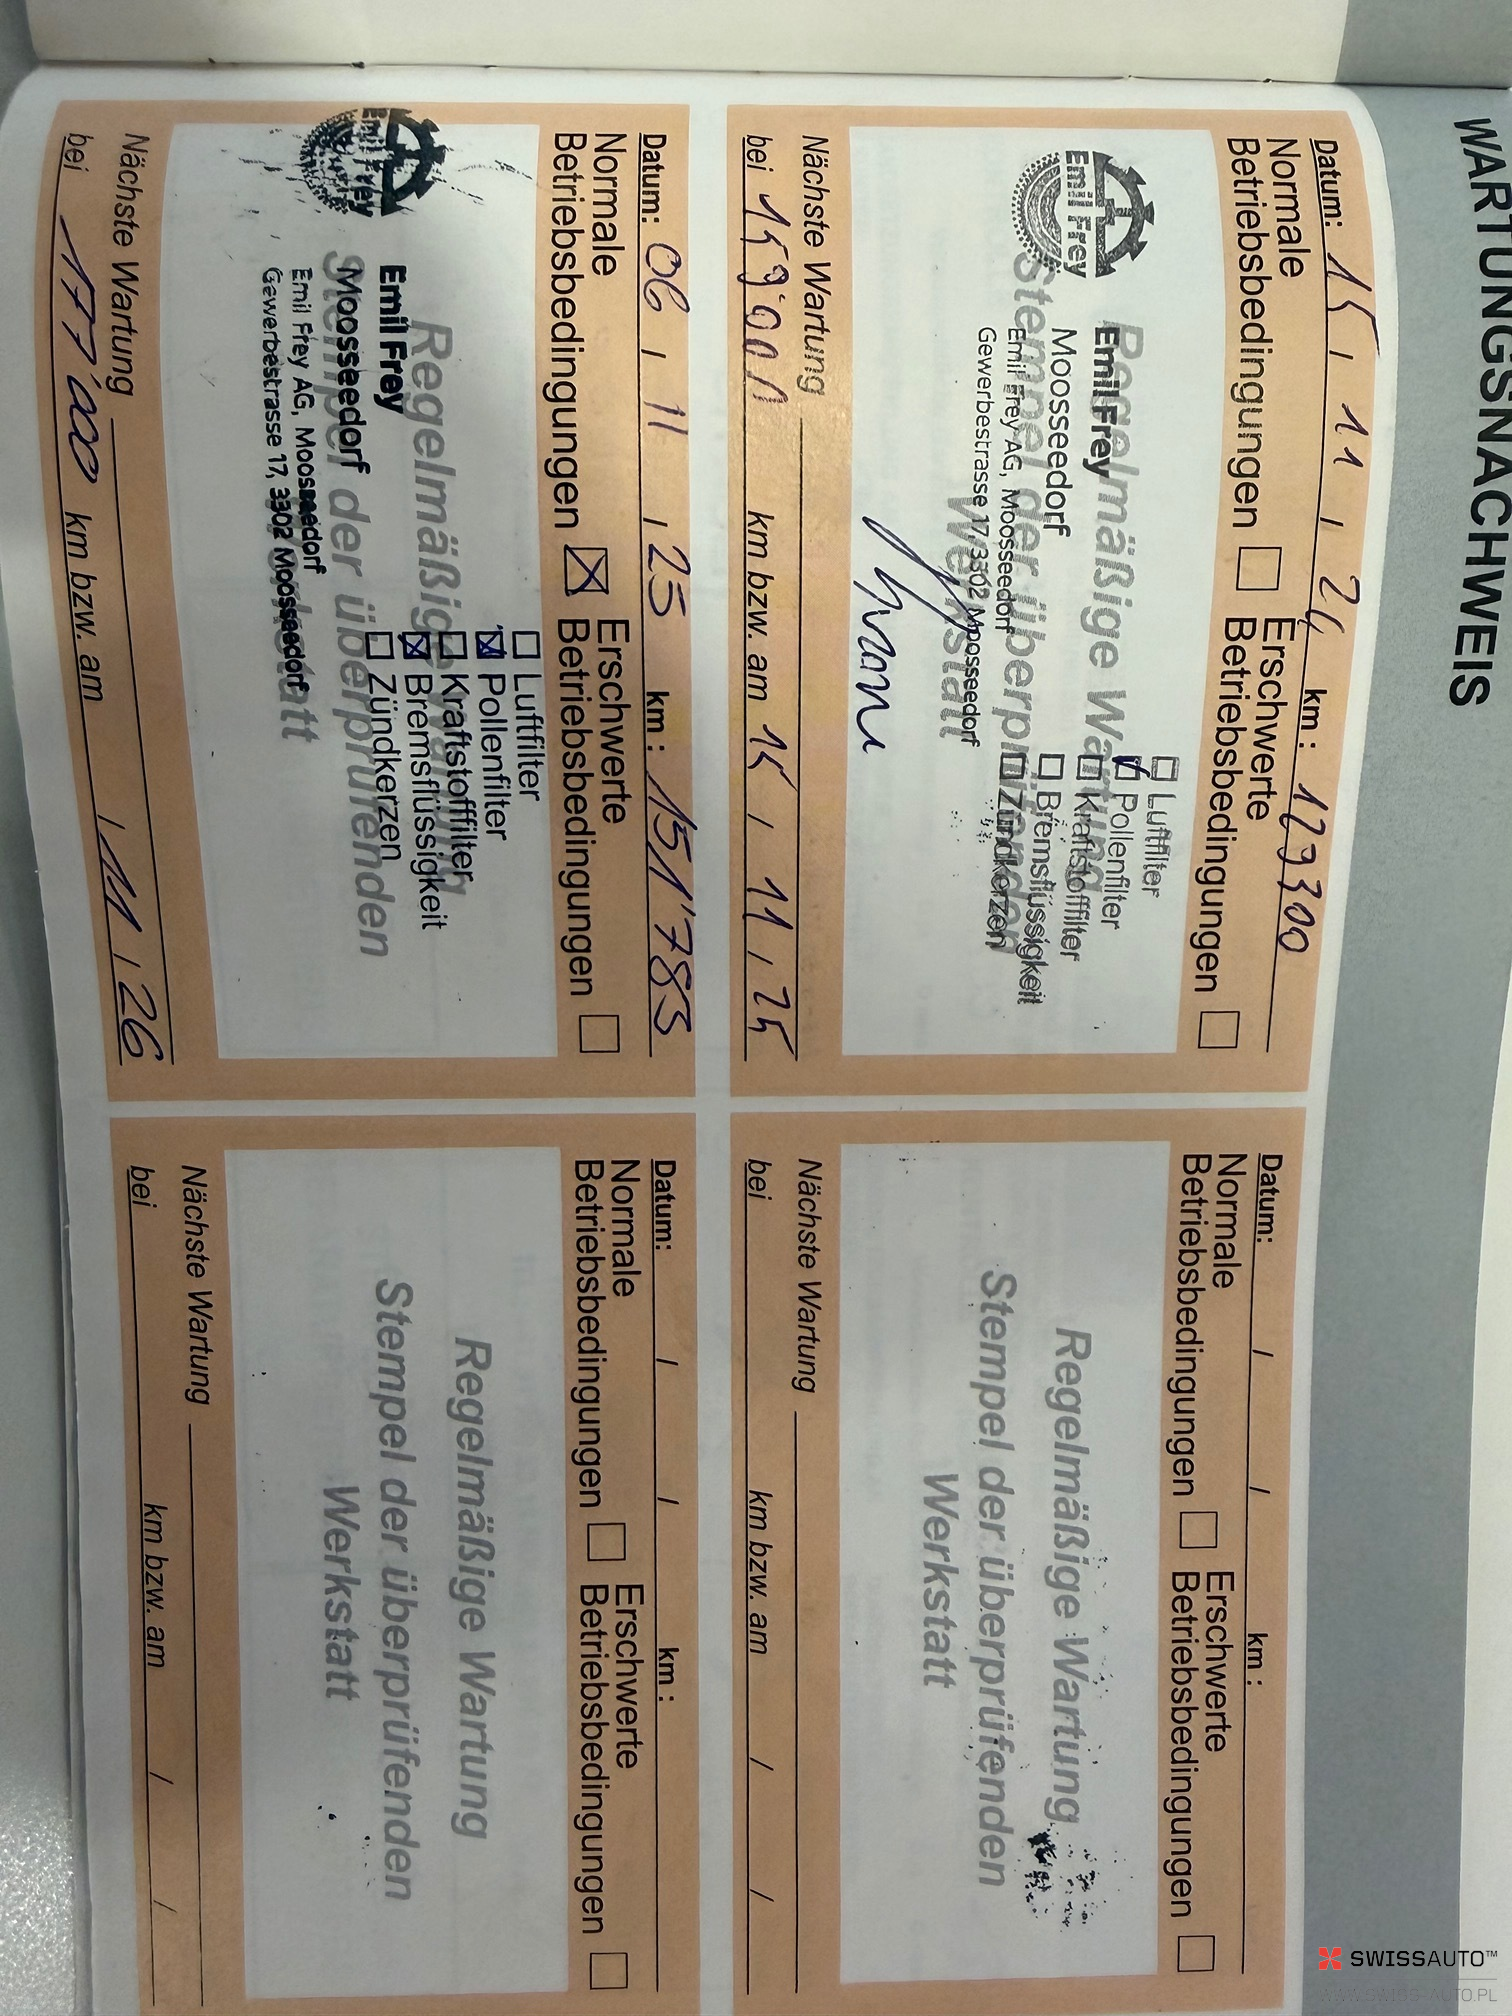 WARTUNGSNACHWEIS
Datum: 15 / 11 / 24 km: 129300
Normale Betriebsbedingungen ☐ Erschwerte Betriebsbedingungen ☐
Regelmäßige Wartung
Stempel der überprüfenden
Werkstatt
Emil Frey
Emil Frey
Moosseedorf
Emil Frey AG, Moosseedorf
Gewerbestrasse 17, 3302 Moosseedorf
☐ Luftfilter
☑ Pollenfilter
☐ Kraftstofffilter
☐ Bremsflüssigkeit
☐ Zündkerzen
Nächste Wartung
bei 159'000 km bzw. am 15 / 11 / 25
Datum: / / km:
Normale Betriebsbedingungen ☐ Erschwerte Betriebsbedingungen ☐
Regelmäßige Wartung
Stempel der überprüfenden
Werkstatt
Nächste Wartung
bei km bzw. am / /
Datum: 06 / 11 / 25 km: 151'783
Normale Betriebsbedingungen ☒ Erschwerte Betriebsbedingungen ☐
Regelmäßige Wartung
Stempel der überprüfenden
Werkstatt
Emil Frey
Emil Frey
Moosseedorf
Emil Frey AG, Moosseedorf
Gewerbestrasse 17, 3302 Moosseedorf
☐ Luftfilter
☒ Pollenfilter
☐ Kraftstofffilter
☒ Bremsflüssigkeit
☐ Zündkerzen
Nächste Wartung
bei 177'000 km bzw. am / 11 / 26
Datum: / / km:
Normale Betriebsbedingungen ☐ Erschwerte Betriebsbedingungen ☐
Regelmäßige Wartung
Stempel der überprüfenden
Werkstatt
Nächste Wartung
bei km bzw. am / /
SWISSAUTO™
WWW.SWISS-AUTO.PL